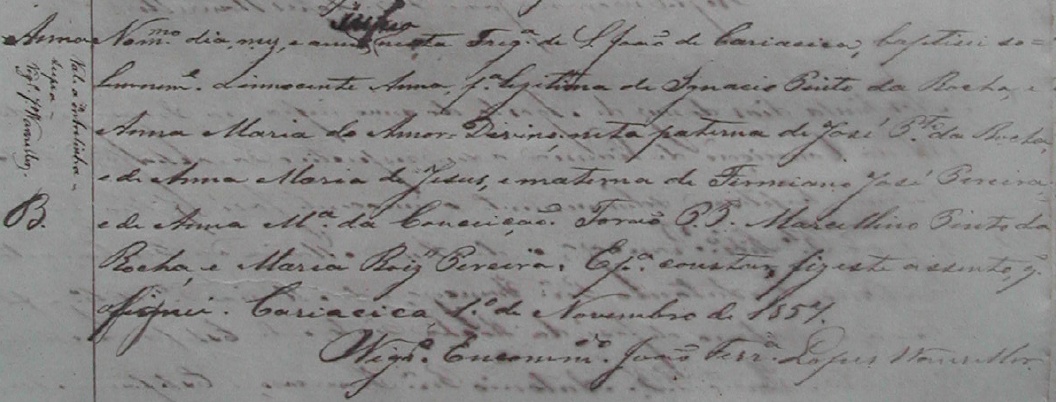 supra
Anna No m.mo dia, mez, e anno nesta Freg.a de S. João de Cariacica, baptisei so=
lemnem.e a innocente Anna, f.a legitima de Ignacio Pinto da Rocha, e
Anna Maria do Amor Divino, neta paterna de José P.to da Rocha,
e de Anna Maria de Jesus, e materna de Firmiano José Pereira
e de Anna M.a da Conceição. Forão P.P. Marcellino Pinto da
Rocha, e Maria Roiz Pereira. E p.a constar, fiz este assento, q
assignei. Cariacica, 1.o de Novembro de 1857.
Vigr.o Encomm.do João Ferr.a Lopes Wanzeller.
Val a entrelinha =
supra =
Vig.r J. Wanzeller
B.